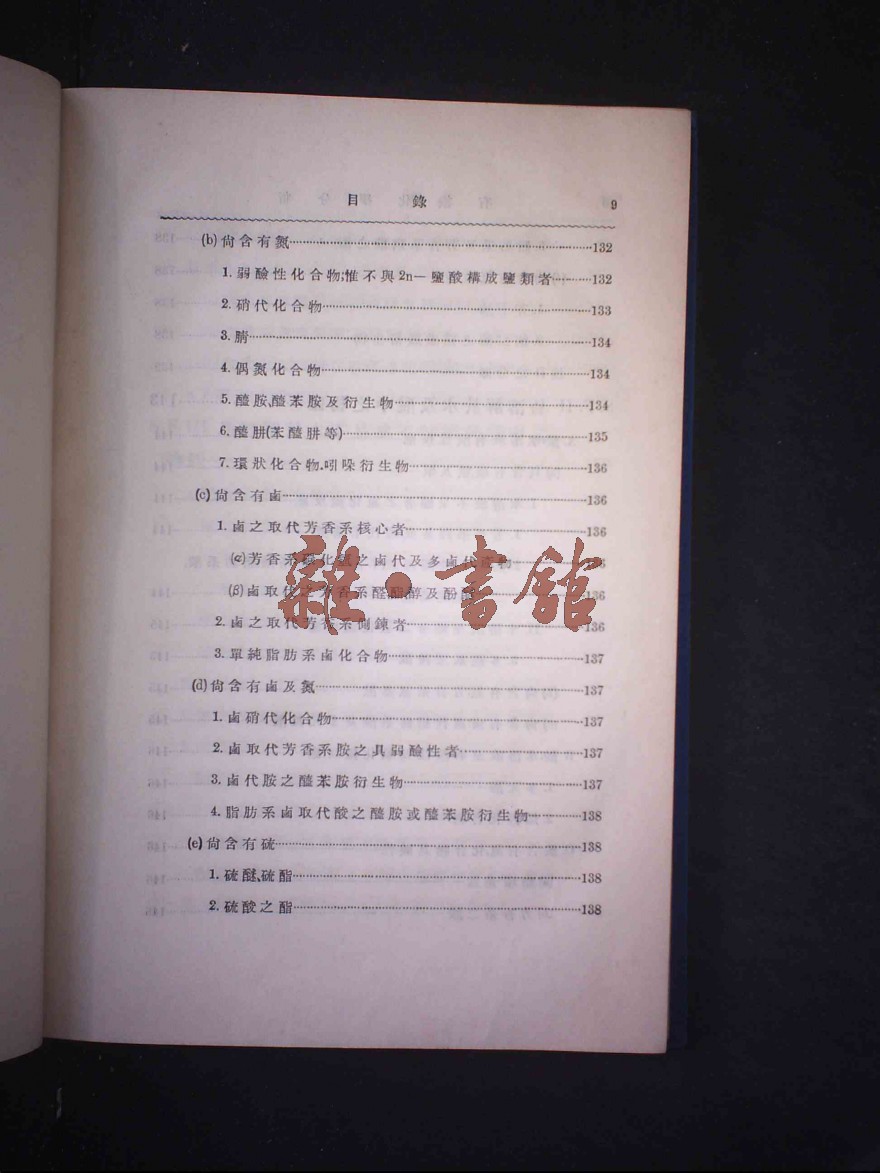 目 錄 9
(b) 尙含有氮 132
1. 弱鹼性化合物;惟不與2n—鹽酸構成鹽類者 132
2. 硝代化合物 133
3. 腈 134
4. 偶氮化合物 134
5. 醯胺、醯苯胺及衍生物 134
6. 醯肼(苯醯肼等) 135
7. 環狀化合物.吲哚衍生物 136
(c) 尙含有鹵 136
1. 鹵之取代芳香系核心者 136
(α) 芳香系碳化氫之鹵代及多鹵代產物
(β) 鹵取代之芳香系醛醚醇及酚 136
2. 鹵之取代芳香系側鍊者 136
3. 單純脂肪系鹵化合物 137
(d) 尙含有鹵及氮 137
1. 鹵硝代化合物 137
2. 鹵取代芳香系胺之具弱鹼性者 137
3. 鹵代胺之醯苯胺衍生物 137
4. 脂肪系鹵取代酸之醯胺或醯苯胺衍生物 138
(e) 尙含有硫 138
1. 硫醚、硫酯 138
2. 硫酸之酯 138
雜·書館